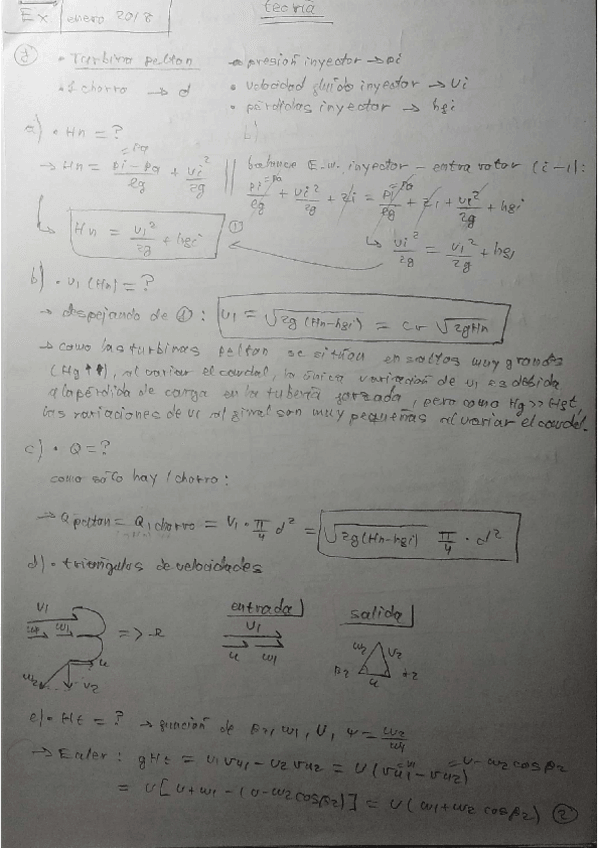 Ex enero 2018 teoría
② • Turbina pelton • presión inyector → pi
• 1 chorro → d • velocidad fluido inyector → vi
• pérdidas inyector → hgi
a) • Hn = ? b)
→ Hn = pi - pa / ρg + vi² / 2g || balance E.m. inyector - entra rotor (i - 1):
pi / ρg + vi² / 2g + zi = p1 / ρg + z1 + v1² / 2g + hgi
Hn = v1² / 2g + hgi ① ↳ vi² / 2g = v1² / 2g + hgi
b) • v1 (Hn) = ?
→ despejando de ①: v1 = √2g (Hn-hgi) = cv √2gHn
→ como las turbinas pelton se sitúan en saltos muy grandes
(Hg ↑↑), al variar el caudal, la única variación de v1 es debida
a la pérdida de carga en la tubería forzada, pero como Hg >>
las variaciones de v1 al final son muy pequeñas al variar el caudal.
c) • Q = ?
como sólo hay 1 chorro:
→ Qpelton = Q1chorro = v1 · π/4 d² = √2g(Hn-hgi) π/4 · d²
d) • triángulos de velocidades
entrada salida
v1 v1 w2 v2
u w1 => u w1 β2 α2
w2 v2 u u
e) • Ht = ? → función de β2, w1, U, ψ = w2 / w1
→ Euler: gHt = u1 vu1 - u2 vu2 = U (vu1 - vu2) = U - w2 cosβ2
= U [U + w1 - (U - w2 cosβ2)] = U (w1 + w2 cosβ2) ②